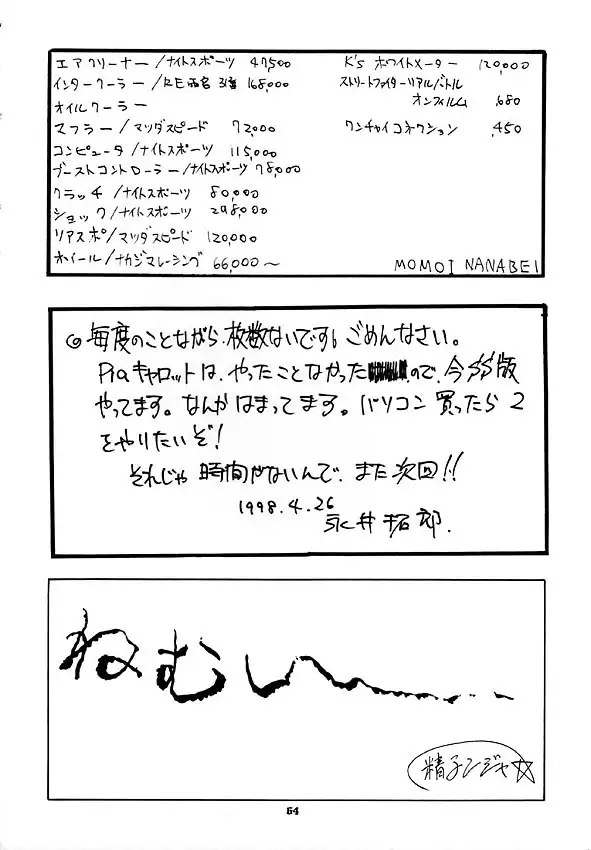 エアクリーナー/ナイトスポーツ 47,500
インタークーラー/RE雨宮 168,000
オイルクーラー
マフラー/マツダスピード 72,000
コンピュータ/ナイトスポーツ 115,000
ブーストコントローラー/ナイトスポーツ 78,000
クラッチ/ナイトスポーツ 80,000
ショック/ナイトスポーツ 298,000
リアスポ/マツダスピード 120,000
ホイール/ナカジマレーシング 66,000〜
K's ホワイトメーター 120,000
ストリートファイターリアルバトル
オンフィルム 680
ワンチャイコネクション ,450
MOMOI NANABEI
◎毎度のことながら、枚数ないです。ごめんなさい。
Piaキャロットは、やったことなかった ので、今SS版
やってます。なんかはまってます。パソコン買ったら2
をやりたいぞ!
それじゃ時間がないんで、また次回!!
1998.4.26
永井拓郎.
ねむい〜...
精子ンジャ☆
64